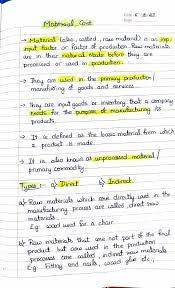 Material Cost
→ Material (also called, raw materials) is an inp
input factor or factor of production. Raw materials
are in their material state before they are
processed or used in production.
→ They are used in the primary production /
manufacturing of goods and services.
→ They are input goods or inventory that a company
needs for the purpose of manufacturing its
products.
→ It is defined as the basic material from which
a product is made.
→ It is also known as unprocessed material /
primary commodity.
Types :- a) Direct b) Indirect
a) Raw materials which are directly used in the
manufacturing process are called direct raw
materials.
Eg. wood used for a chair
b) Raw materials that are not part of the final
product but are used in the production
processes are called, indirect raw materials
Eg: Fitting and nails, wood glue etc.